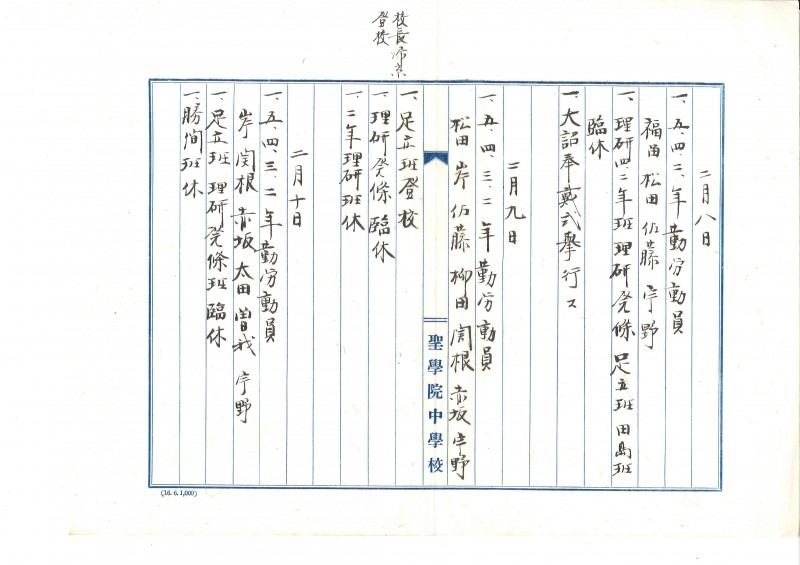 二月八日
一、五、四、二、年勤労動員
福留 松田 佐藤 宇野
一、理研四二年班 理研発條 足立班 田島班
臨休
一、大詔奉戴式挙行ス
二月九日
一、五、四、三、二年勤労動員
松田 岸 佐藤 柳田 関根 赤坂 宇野
聖學院中學校
校長帰京
登校
一、足立班登校
一、理研発條臨休
一、二年理研班休
二月十日
一、五、四、三、二年勤労動員
岸 関根 赤坂 太田 曽我 宇野
一、足立班 理研発條班臨休
一、勝間班休
(16. 6. 1,000)